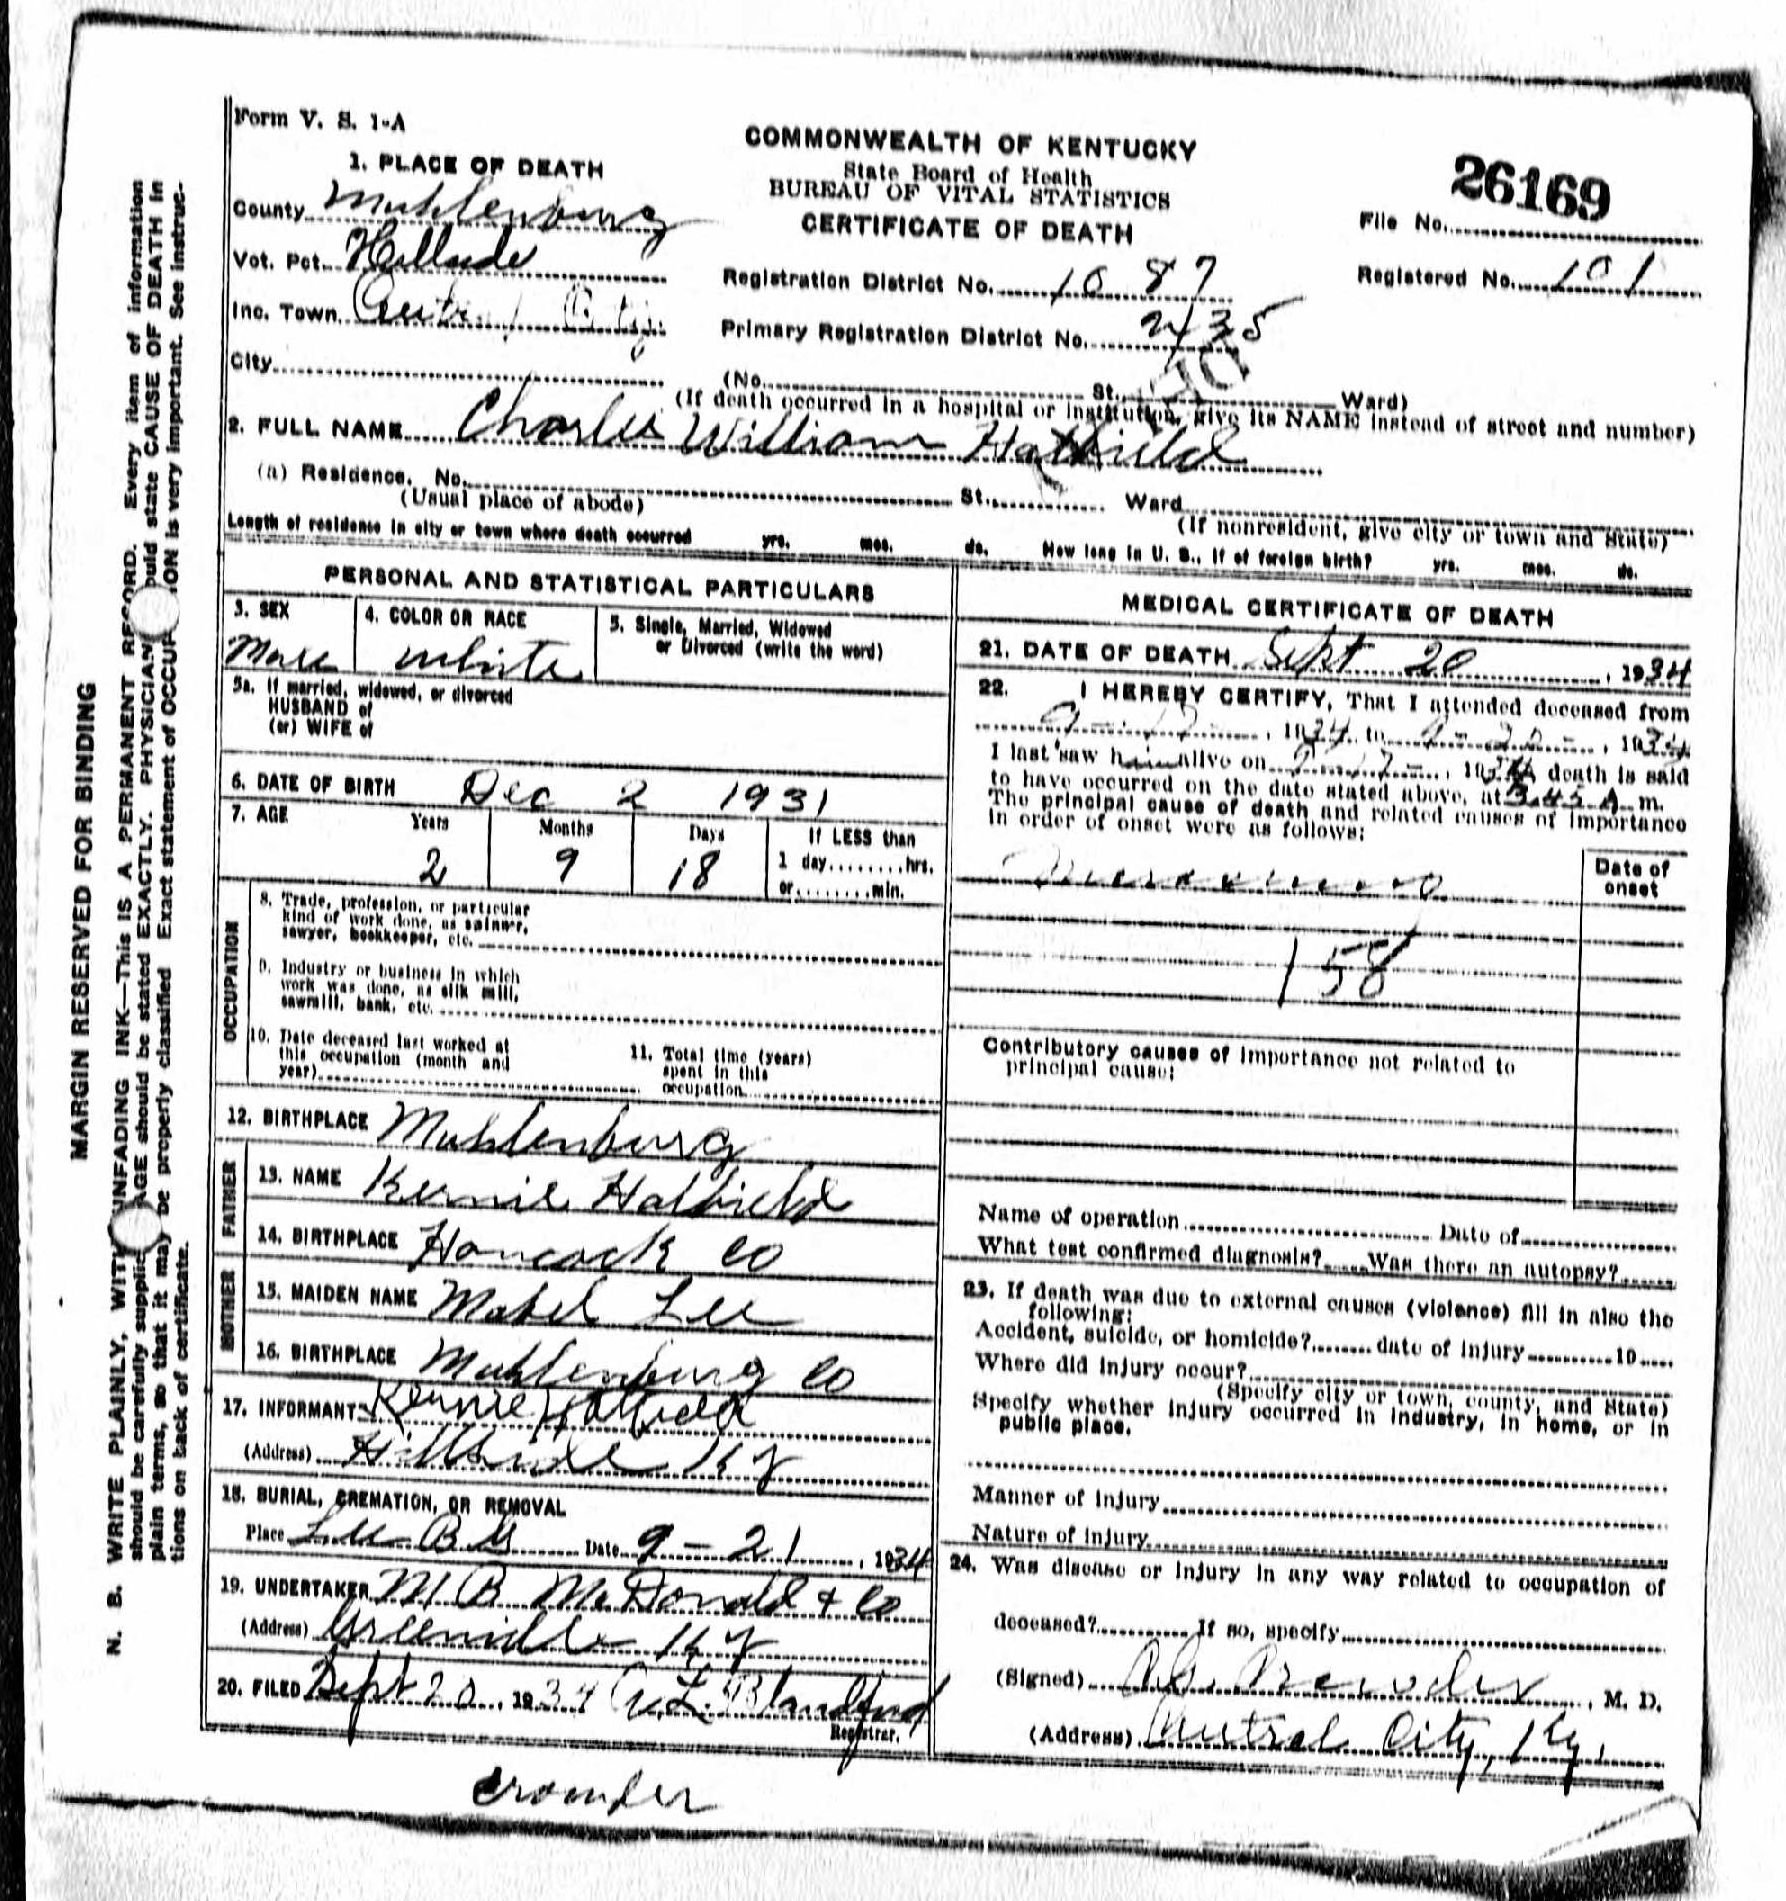 Form V. S. 1-A
COMMONWEALTH OF KENTUCKY
State Board of Health
BUREAU OF VITAL STATISTICS
CERTIFICATE OF DEATH
26169
File No.
Registered No. 101
1. PLACE OF DEATH
County Muhlenburg
Vot. Pct. Hillside
Inc. Town
City
Registration District No. 1087
Primary Registration District No. 2435
(No. St. Ward)
(If death occurred in a hospital or institution, give its NAME instead of street and number)
2. FULL NAME Charles William Hatfield
(a) Residence. No. St. Ward
(Usual place of abode) (If nonresident, give city or town and State)
Length of residence in city or town where death occurred yrs. mos. ds. How long in U. S., if of foreign birth? yrs. mos. ds.
PERSONAL AND STATISTICAL PARTICULARS
3. SEX
Male
4. COLOR OR RACE
White
5. Single, Married, Widowed
or Divorced (write the word)
5a. If married, widowed, or divorced
HUSBAND of
(or) WIFE of
6. DATE OF BIRTH Dec 2 1931
7. AGE Years Months Days If LESS than
2 9 18 1 day hrs.
or min.
OCCUPATION
8. Trade, profession, or particular
kind of work done, as spinner,
sawyer, bookkeeper, etc.
9. Industry or business in which
work was done, as silk mill,
sawmill, bank, etc.
10. Date deceased last worked at
this occupation (month and
year)
11. Total time (years)
spent in this
occupation
12. BIRTHPLACE Muhlenburg
FATHER
13. NAME Kernie Hatfield
14. BIRTHPLACE Hancock Co
MOTHER
15. MAIDEN NAME Mabel Lee
16. BIRTHPLACE Muhlenburg Co
17. INFORMANT Kernie Hatfield
(Address) Hillside Ky
18. BURIAL, CREMATION, OR REMOVAL
Place Lee B G Date 9-21, 1934
19. UNDERTAKER M B McDonald & Co
(Address) Greenville Ky
20. FILED Sept 20, 1934 A. L. Blandford
Registrar.
MEDICAL CERTIFICATE OF DEATH
21. DATE OF DEATH Sept 20, 1934
22. I HEREBY CERTIFY, That I attended deceased from
9-17-, 1934 to 9-20-, 1934
I last saw him alive on 9-17-, 1934, death is said
to have occurred on the date stated above, at 3.45 A m.
The principal cause of death and related causes of importance
in order of onset were as follows:
Date of
onset
158
Contributory causes of importance not related to
principal cause:
Name of operation Date of
What test confirmed diagnosis? Was there an autopsy?
23. If death was due to external causes (violence) fill in also the
following:
Accident, suicide, or homicide? date of injury 19
Where did injury occur?
(Specify city or town, county, and State)
Specify whether injury occurred in industry, in home, or in
public place.
Manner of injury
Nature of injury
24. Was disease or injury in any way related to occupation of
deceased? If so, specify
(Signed) , M. D.
(Address) Central City, Ky.
crowder
MARGIN RESERVED FOR BINDING
N. B. WRITE PLAINLY, WITH UNFADING INK—This IS A PERMANENT RECORD. Every item of information
should be carefully supplied AGE should be stated EXACTLY. PHYSICIAN ould state CAUSE OF DEATH in
plain terms, so that it may be properly classified Exact statement of OCCUP ION is very important. See instruc-
tions on back of certificate.